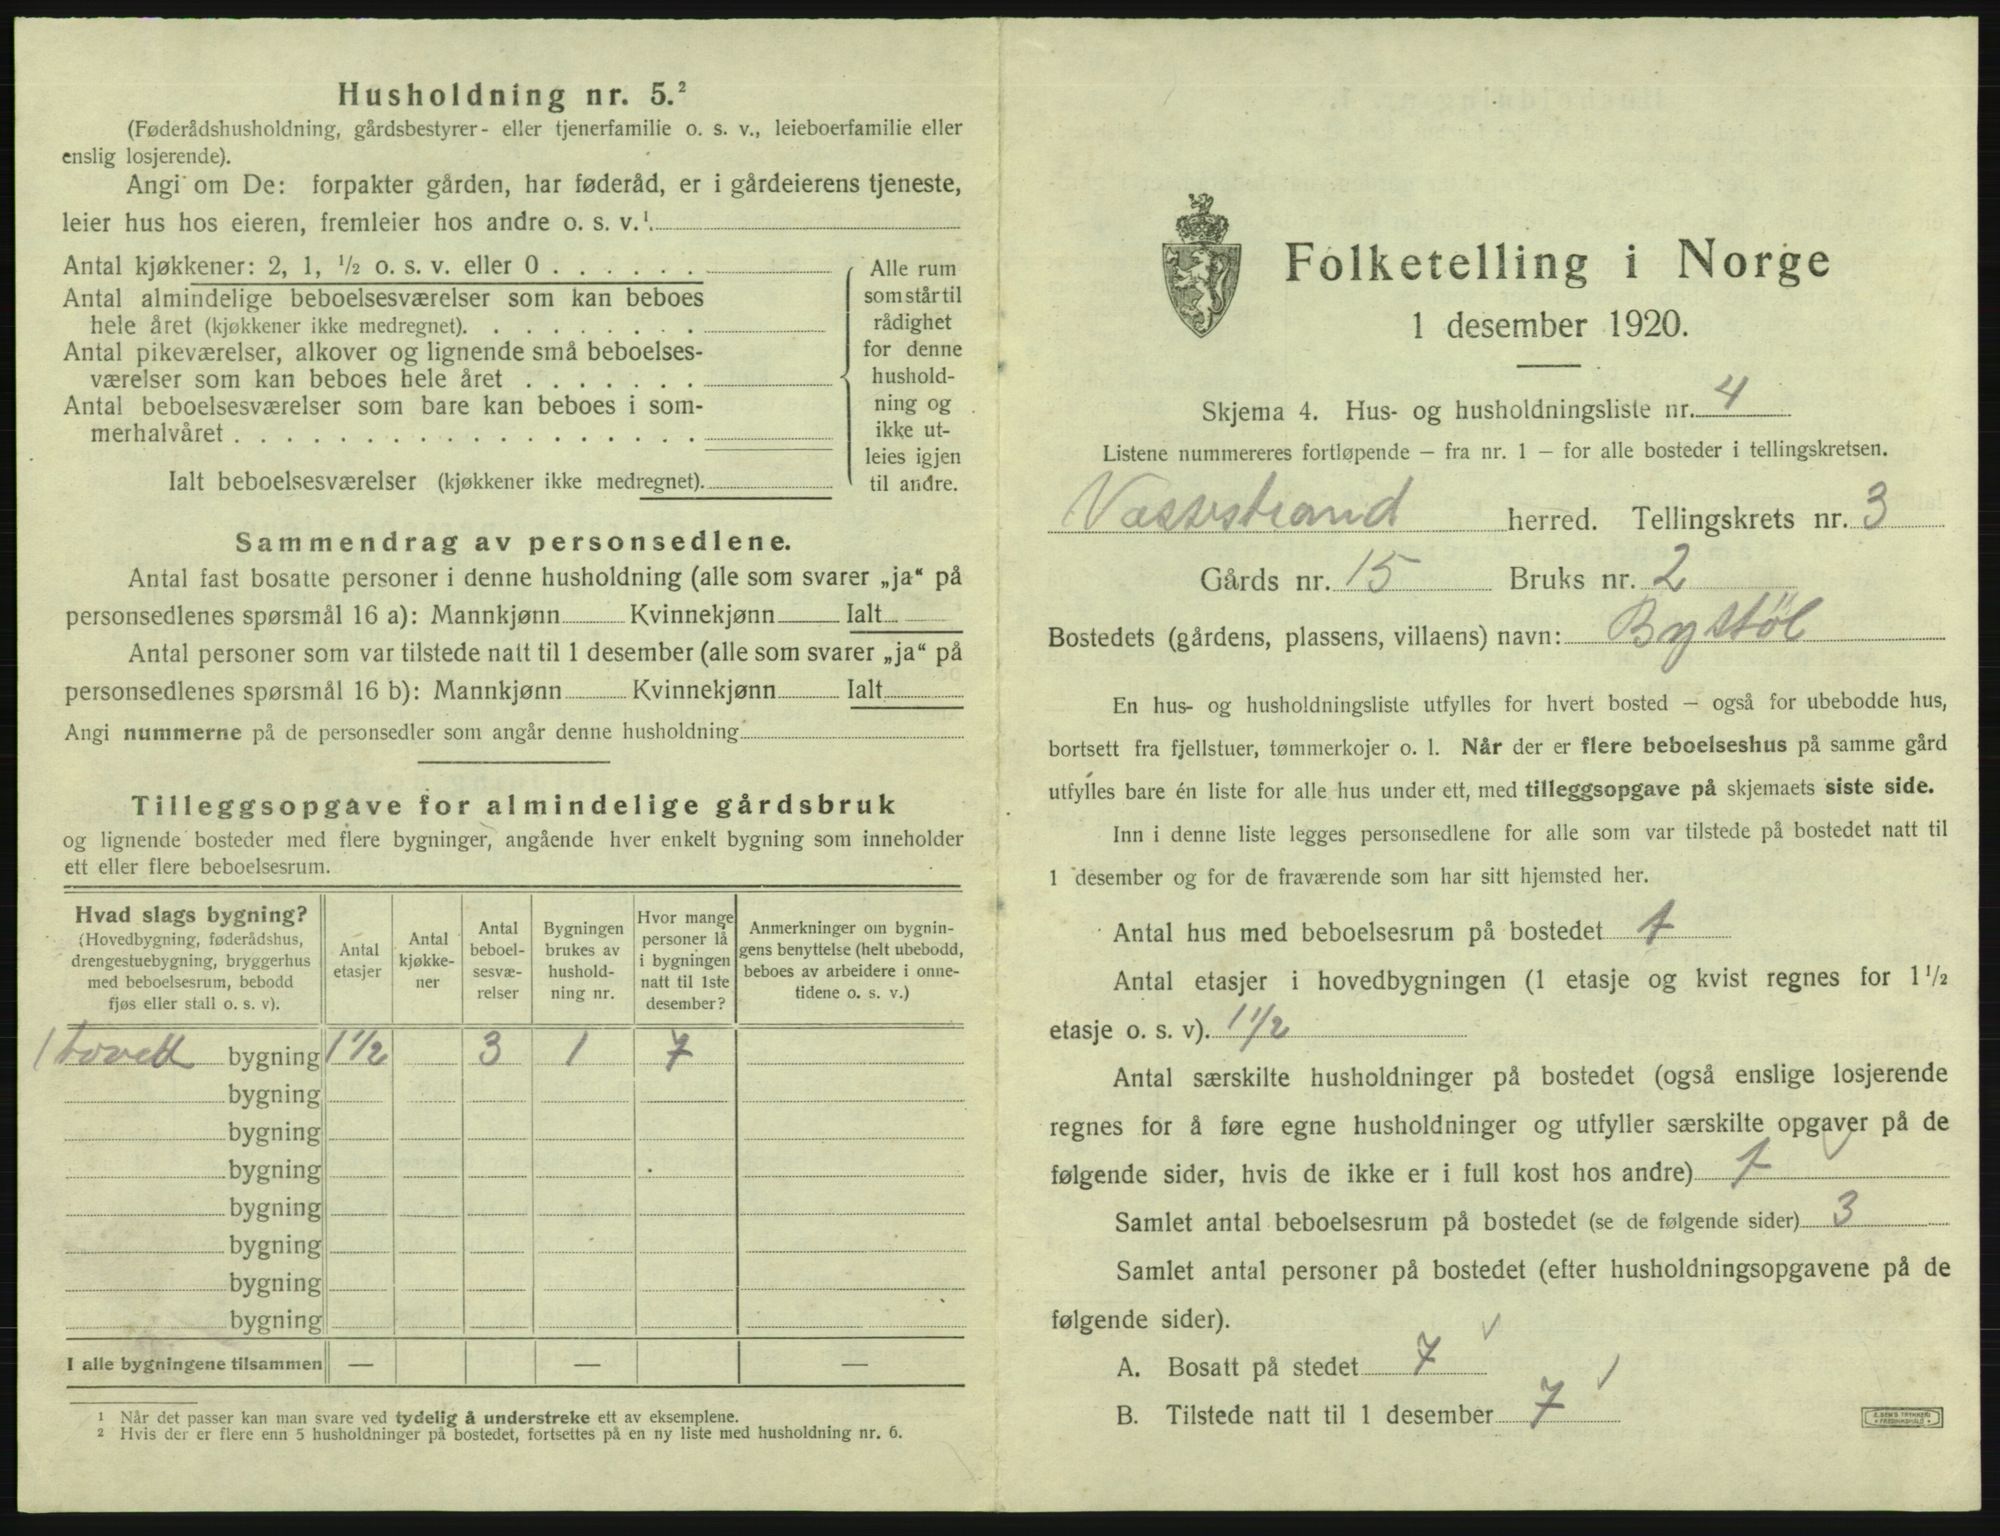 Husholdning nr. 5.²
(Føderådshusholdning, gårdsbestyrer- eller tjenerfamilie o. s. v., leieboerfamilie eller
enslig losjerende).
Angi om De: forpakter gården, har føderåd, er i gårdeierens tjeneste,
leier hus hos eieren, fremleier hos andre o. s. v.¹
Antal kjøkkener: 2, 1, ½ o. s. v. eller 0 . . . . . .
Antal almindelige beboelsesværelser som kan beboes
hele året (kjøkkener ikke medregnet). . . . . . . . .
Antal pikeværelser, alkover og lignende små beboelses-
værelser som kan beboes hele året . . . . . . .
Antal beboelsesværelser som bare kan beboes i som-
merhalvåret . . . . . . . . . . . . . . . . . .
Ialt beboelsesværelser (kjøkkener ikke medregnet).
Alle rum
som står til
rådighet
for denne
hushold-
ning og
ikke ut-
leies igjen
til andre.
Sammendrag av personsedlene.
Antal fast bosatte personer i denne husholdning (alle som svarer „ja“ på
personsedlenes spørsmål 16 a): Mannkjønn Kvinnekjønn Ialt
Antal personer som var tilstede natt til 1 desember (alle som svarer „ja“ på
personsedlenes spørsmål 16 b): Mannkjønn Kvinnekjønn Ialt
Angi nummerne på de personsedler som angår denne husholdning
Tilleggsopgave for almindelige gårdsbruk
og lignende bosteder med flere bygninger, angående hver enkelt bygning som inneholder
ett eller flere beboelsesrum.
Hvad slags bygning?
(Hovedbygning, føderådshus,
drengestuebygning, bryggerhus
med beboelsesrum, bebodd
fjøs eller stall o. s. v).
Antal
etasjer
Antal
kjøkke-
ner
Antal
beboel-
sesvæ-
relser
Bygningen
brukes av
hushold-
ning nr.
Hvor mange
personer lå
i bygningen
natt til 1ste
desember?
Anmerkninger om bygnin-
gens benyttelse (helt ubebodd,
beboes av arbeidere i onne-
tidene o. s. v.)
bygning 1½ 3 1 7
bygning
bygning
bygning
bygning
bygning
bygning
bygning
I alle bygningene tilsammen — — —
¹ Når det passer kan man svare ved tydelig å understreke ett av eksemplene.
² Hvis der er flere enn 5 husholdninger på bostedet, fortsettes på en ny liste med husholdning nr. 6.
Folketelling i Norge
1 desember 1920.
Skjema 4. Hus- og husholdningsliste nr. 4
Listene nummereres fortløpende – fra nr. 1 – for alle bosteder i tellingskretsen.
Vossestrand herred. Tellingskrets nr. 3
Gårds nr. 15 Bruks nr. 2
Bostedets (gårdens, plassens, villaens) navn: Bystöl
En hus- og husholdningsliste utfylles for hvert bosted – også for ubebodde hus,
bortsett fra fjellstuer, tømmerkojer o. l. Når der er flere beboelseshus på samme gård
utfylles bare én liste for alle hus under ett, med tilleggsopgave på skjemaets siste side.
Inn i denne liste legges personsedlene for alle som var tilstede på bostedet natt til
1 desember og for de fraværende som har sitt hjemsted her.
Antal hus med beboelsesrum på bostedet 1
Antal etasjer i hovedbygningen (1 etasje og kvist regnes for 1½
etasje o. s. v). 1½
Antal særskilte husholdninger på bostedet (også enslige losjerende
regnes for å føre egne husholdninger og utfyller særskilte opgaver på de
følgende sider, hvis de ikke er i full kost hos andre) 1
Samlet antal beboelsesrum på bostedet (se de følgende sider) 3
Samlet antal personer på bostedet (efter husholdningsopgavene på de
følgende sider).
A. Bosatt på stedet 7
B. Tilstede natt til 1 desember 7